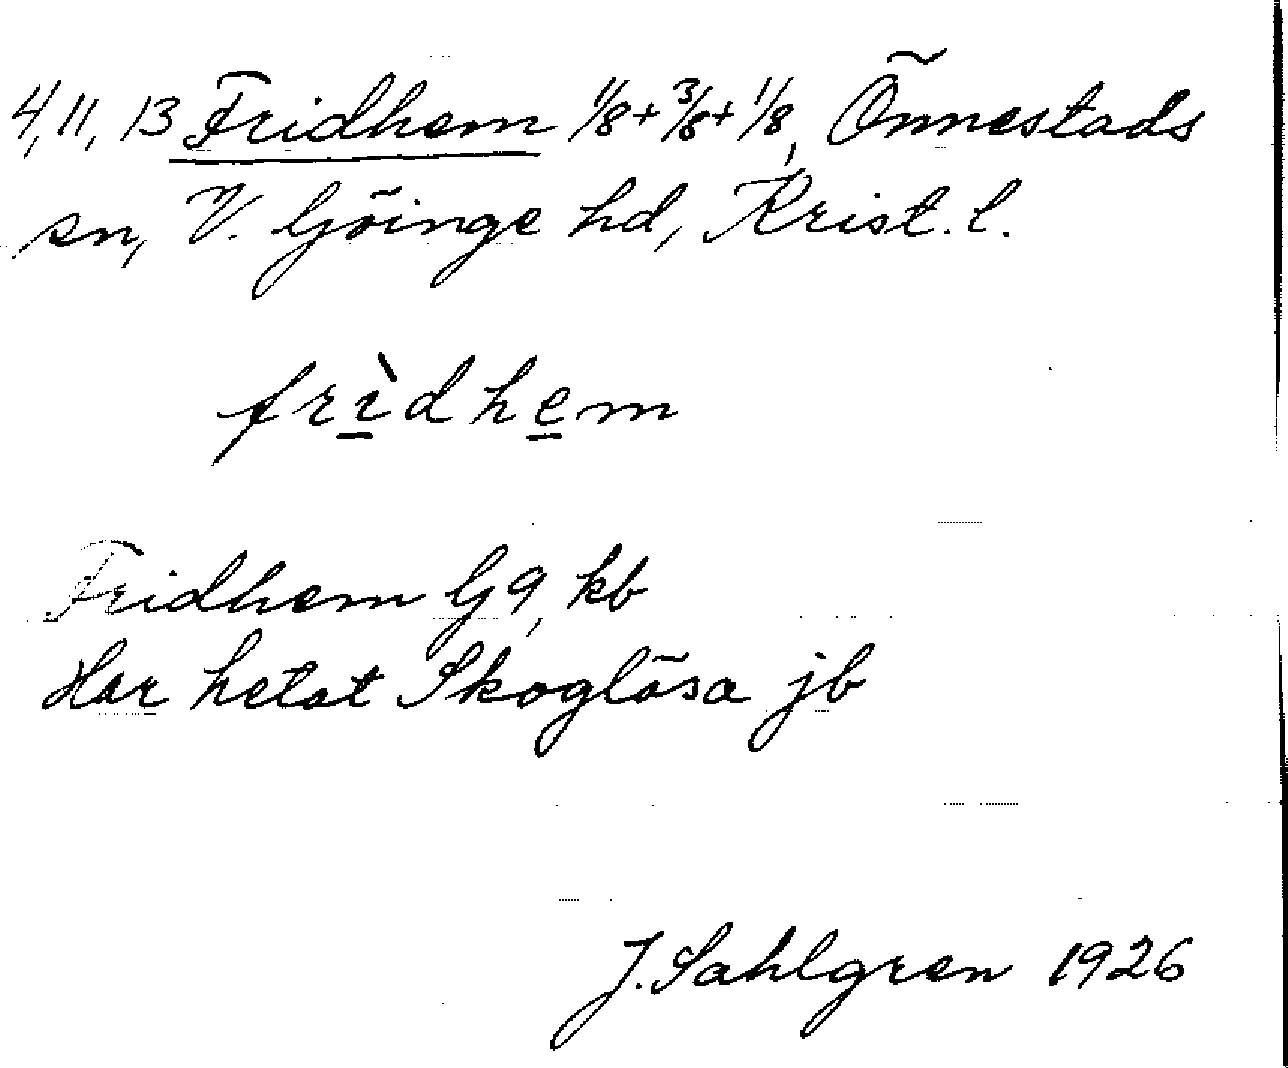 4, 11, 13 Fridhem 1/8 + 3/8 + 1/8, Önnestads
sn, V. Göinge hd, Krist. l.
frì̲dhe̲m
Fridhem G 9, kb
Har hetat Skoglösa jb
J. Sahlgren 1926